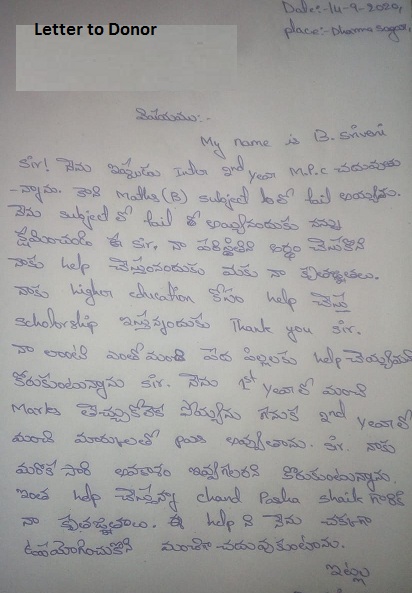 Letter to Donor
Date:-14-9-2020,
place:- Dharma Sagar,
విషయము:-
My name is B. Srivani
Sir! నేను ఇప్పుడు Inter 2nd year M.P.C చదువుతు
-న్నాను. కాని Maths(B) subject లో fail అయ్యాను.
నేను subject లో fail అయినందుకు నన్ను
క్షమించండి sir. నా పరిస్థితిని అర్థం చేసుకొని
నాకు help చేస్తునందుకు మీకు నా కృతజ్ఞతలు.
నాకు higher education కోసం help చేస్తు
scholarship ఇస్తున్నందుకు Thank you sir.
నా లాంటి ఎంతోమంది పేద పిల్లలకు help చెయ్యాలని
కోరుకుంటున్నాను sir. నేను 1st year లో మంచి
Marks తెచ్చుకోలేక పోయ్యాను గనుక 2nd year లో
మంచి మార్కులతో pass అవ్వుతాను. sir. నాకు
మరొక సారి అవకాశం ఇవ్వగలరని కోరుకుంటున్నాను.
ఇంత help చేస్తున్న chand Pasha shaik గారికి
నా కృతజ్ఞతలు. ఈ help ని నేను చక్కగా
ఉపయోగించుకొని మంచిగా చదువుకుంటాను.
ఇట్లు